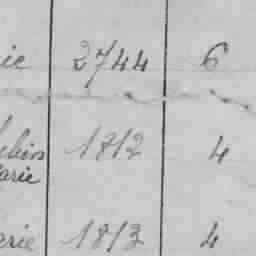 ie 2744 6
1812 4
arie
arie 1813 4